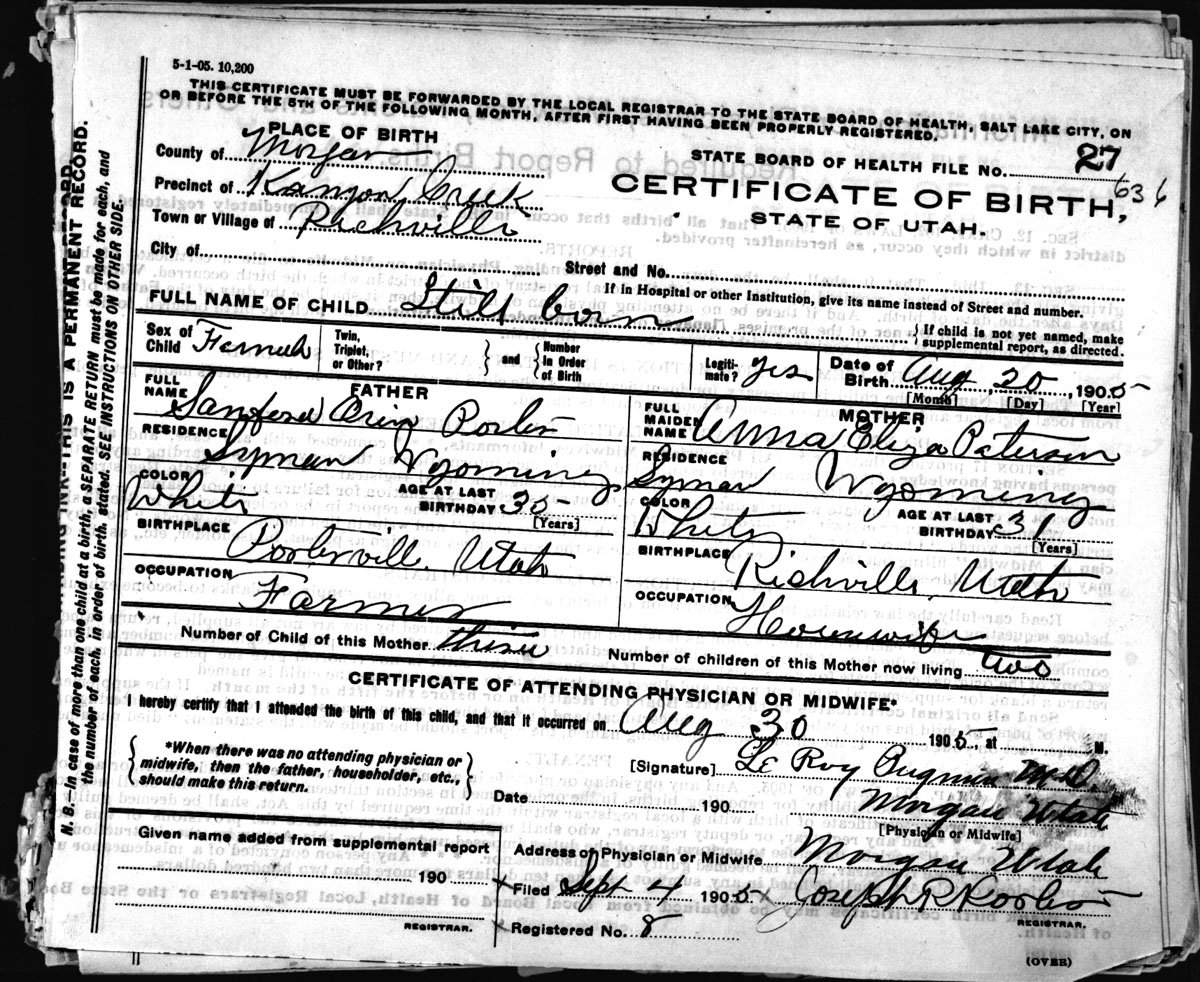 5-1-05. 10,200
THIS CERTIFICATE MUST BE FORWARDED BY THE LOCAL REGISTRAR TO THE STATE BOARD OF HEALTH, SALT LAKE CITY, ON
OR BEFORE THE 5TH OF THE FOLLOWING MONTH, AFTER FIRST HAVING BEEN PROPERLY REGISTERED.
PLACE OF BIRTH
STATE BOARD OF HEALTH FILE No. 27
636
County of Morgan
CERTIFICATE OF BIRTH,
Precinct of Kanyon Creek
STATE OF UTAH.
Town or Village of Richville
City of
Street and No.
If in Hospital or other Institution, give its name instead of Street and number.
FULL NAME OF CHILD Still born
{ If child is not yet named, make supplemental report, as directed.
Sex of Child Female
Twin, Triplet, or Other?
and
Number in Order of Birth
Legitimate? Yes
Date of Birth Aug 20, 1905
[Month] [Day] [Year]
FATHER
FULL NAME Sanford Orin Porter
RESIDENCE Lyman Wyoming
COLOR White
AGE AT LAST BIRTHDAY 35
[Years]
BIRTHPLACE Porterville, Utah
OCCUPATION Farmer
MOTHER
FULL MAIDEN NAME Anna Eliza Paterson
RESIDENCE Lyman Wyoming
COLOR White
AGE AT LAST BIRTHDAY 31
[Years]
BIRTHPLACE Richville, Utah
OCCUPATION Housewife
Number of Child of this Mother three
Number of children of this Mother now living two
CERTIFICATE OF ATTENDING PHYSICIAN OR MIDWIFE*
I hereby certify that I attended the birth of this child, and that it occurred on Aug 30 1905, at M.
*When there was no attending physician or midwife, then the father, householder, etc., should make this return.
[Signature] Le Roy Pugmire M.D.
Date 190 Morgan Utah
[Physician or Midwife]
Given name added from supplemental report
190
REGISTRAR.
Address of Physician or Midwife Morgan Utah
Filed Sept 4 1905 Joseph R Porter
REGISTRAR.
Registered No. 8
(OVER)
N. B.—In case of more than one child at a birth, a SEPARATE RETURN must be made for each, and
the number of each, in order of birth, stated. SEE INSTRUCTIONS ON OTHER SIDE.
INK—THIS IS A PERMANENT RECORD.